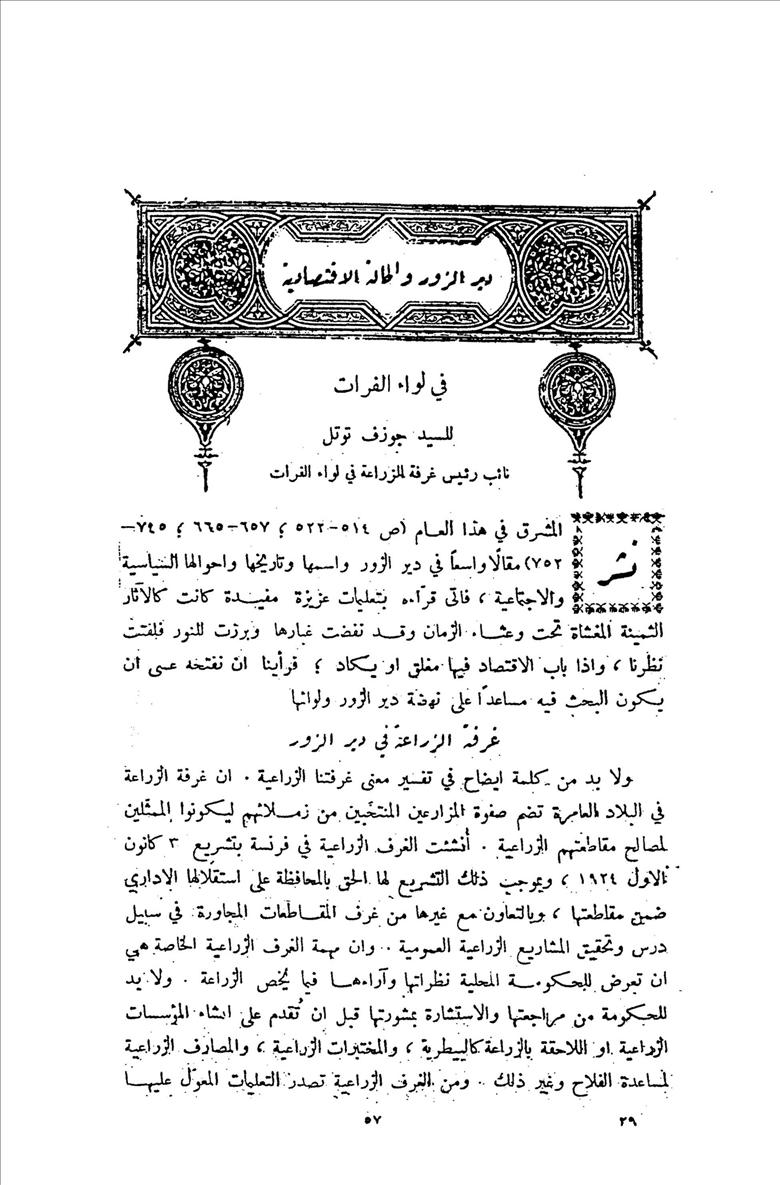 دير الزور والحالة الاقتصادية
في لواء الفرات
للسيد جوزف توتل
نائب رئيس غرفة الزراعة في لواء الفرات
نشر المشرق في هذا العام (ص ٥١٤–٥٢٢ ؛ ٦٥٧–٦٦٥ ؛ ٧٤٥–
٧٥٢) مقالًا واسعاً في دير الزور واسمها وتاريخها واحوالها السياسية
والاجتماعية ، فاتى قرّاءه بتعليمات عزيزة مفيدة كانت كالآثار
الثمينة المغشاة تحت وعثاء الزمان وقد نفضت غبارها وبرزت للنور فلفتت
نظرنا ، واذا باب الاقتصاد فيها مغلق او يكاد ؛ فرأينا ان نفتحه عسى ان
يكون البحث فيه مساعدًا على نهضة دير الزور ولوائها
غرفة الزراعة في دير الزور
ولا بد من كلمة ايضاح في تفسير معنى غرفتنا الزراعية . ان غرفة الزراعة
في البلاد العامرة تضم صفوة المزارعين المنتخَبين من زملائهم ليكونوا الممثّلين
لمصالح مقاطعتهم الزراعية . أُنشئت الغرف الزراعية في فرنسة بتشريع ٣ كانون
الاول ١٩٢٤ ، وبموجب ذلك التشريع لها الحق بالمحافظة على استقلالها الإداري
ضمن مقاطعتها ، وبالتعاون مع غيرها من غرف المقاطعات المجاورة في سبيل
درس وتحقيق المشاريع الزراعية العمومية . وان مهمة الغرف الزراعية الخاصة هي
ان تعرض للحكومة المحلية نظراتها وآراءها فيما يُخص الزراعة . ولا بد
للحكومة من مراجعتها والاستشارة بمشورتها قبل ان تُقدم على انشاء المؤسسات
الزراعية او اللاحقة بالزراعة كالبيطرية ، والمختبرات الزراعية ، والمصارف الزراعية
لمساعدة الفلاح وغير ذلك . ومن الغرف الزراعية تصدر التعليمات المعوّل عليها
٢٩
٥٧